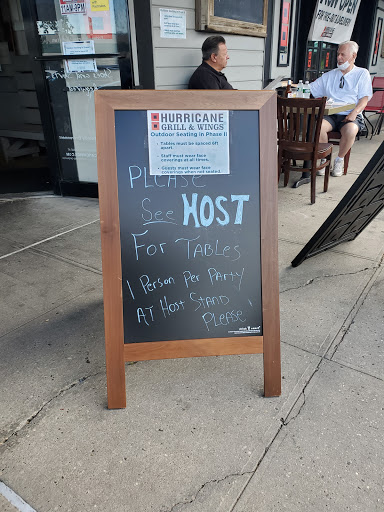 11AM-9PM
OPEN
HURRICANE
GRILL & WINGS
Outdoor Seating in Phase II
• Tables must be spaced 6ft
apart.
• Staff must wear face
coverings at all times.
• Guests must wear face
coverings when not seated.
PLEASE
See HOST
For TABLES
1 Person Per Party
AT Host Stand
PLEASE!